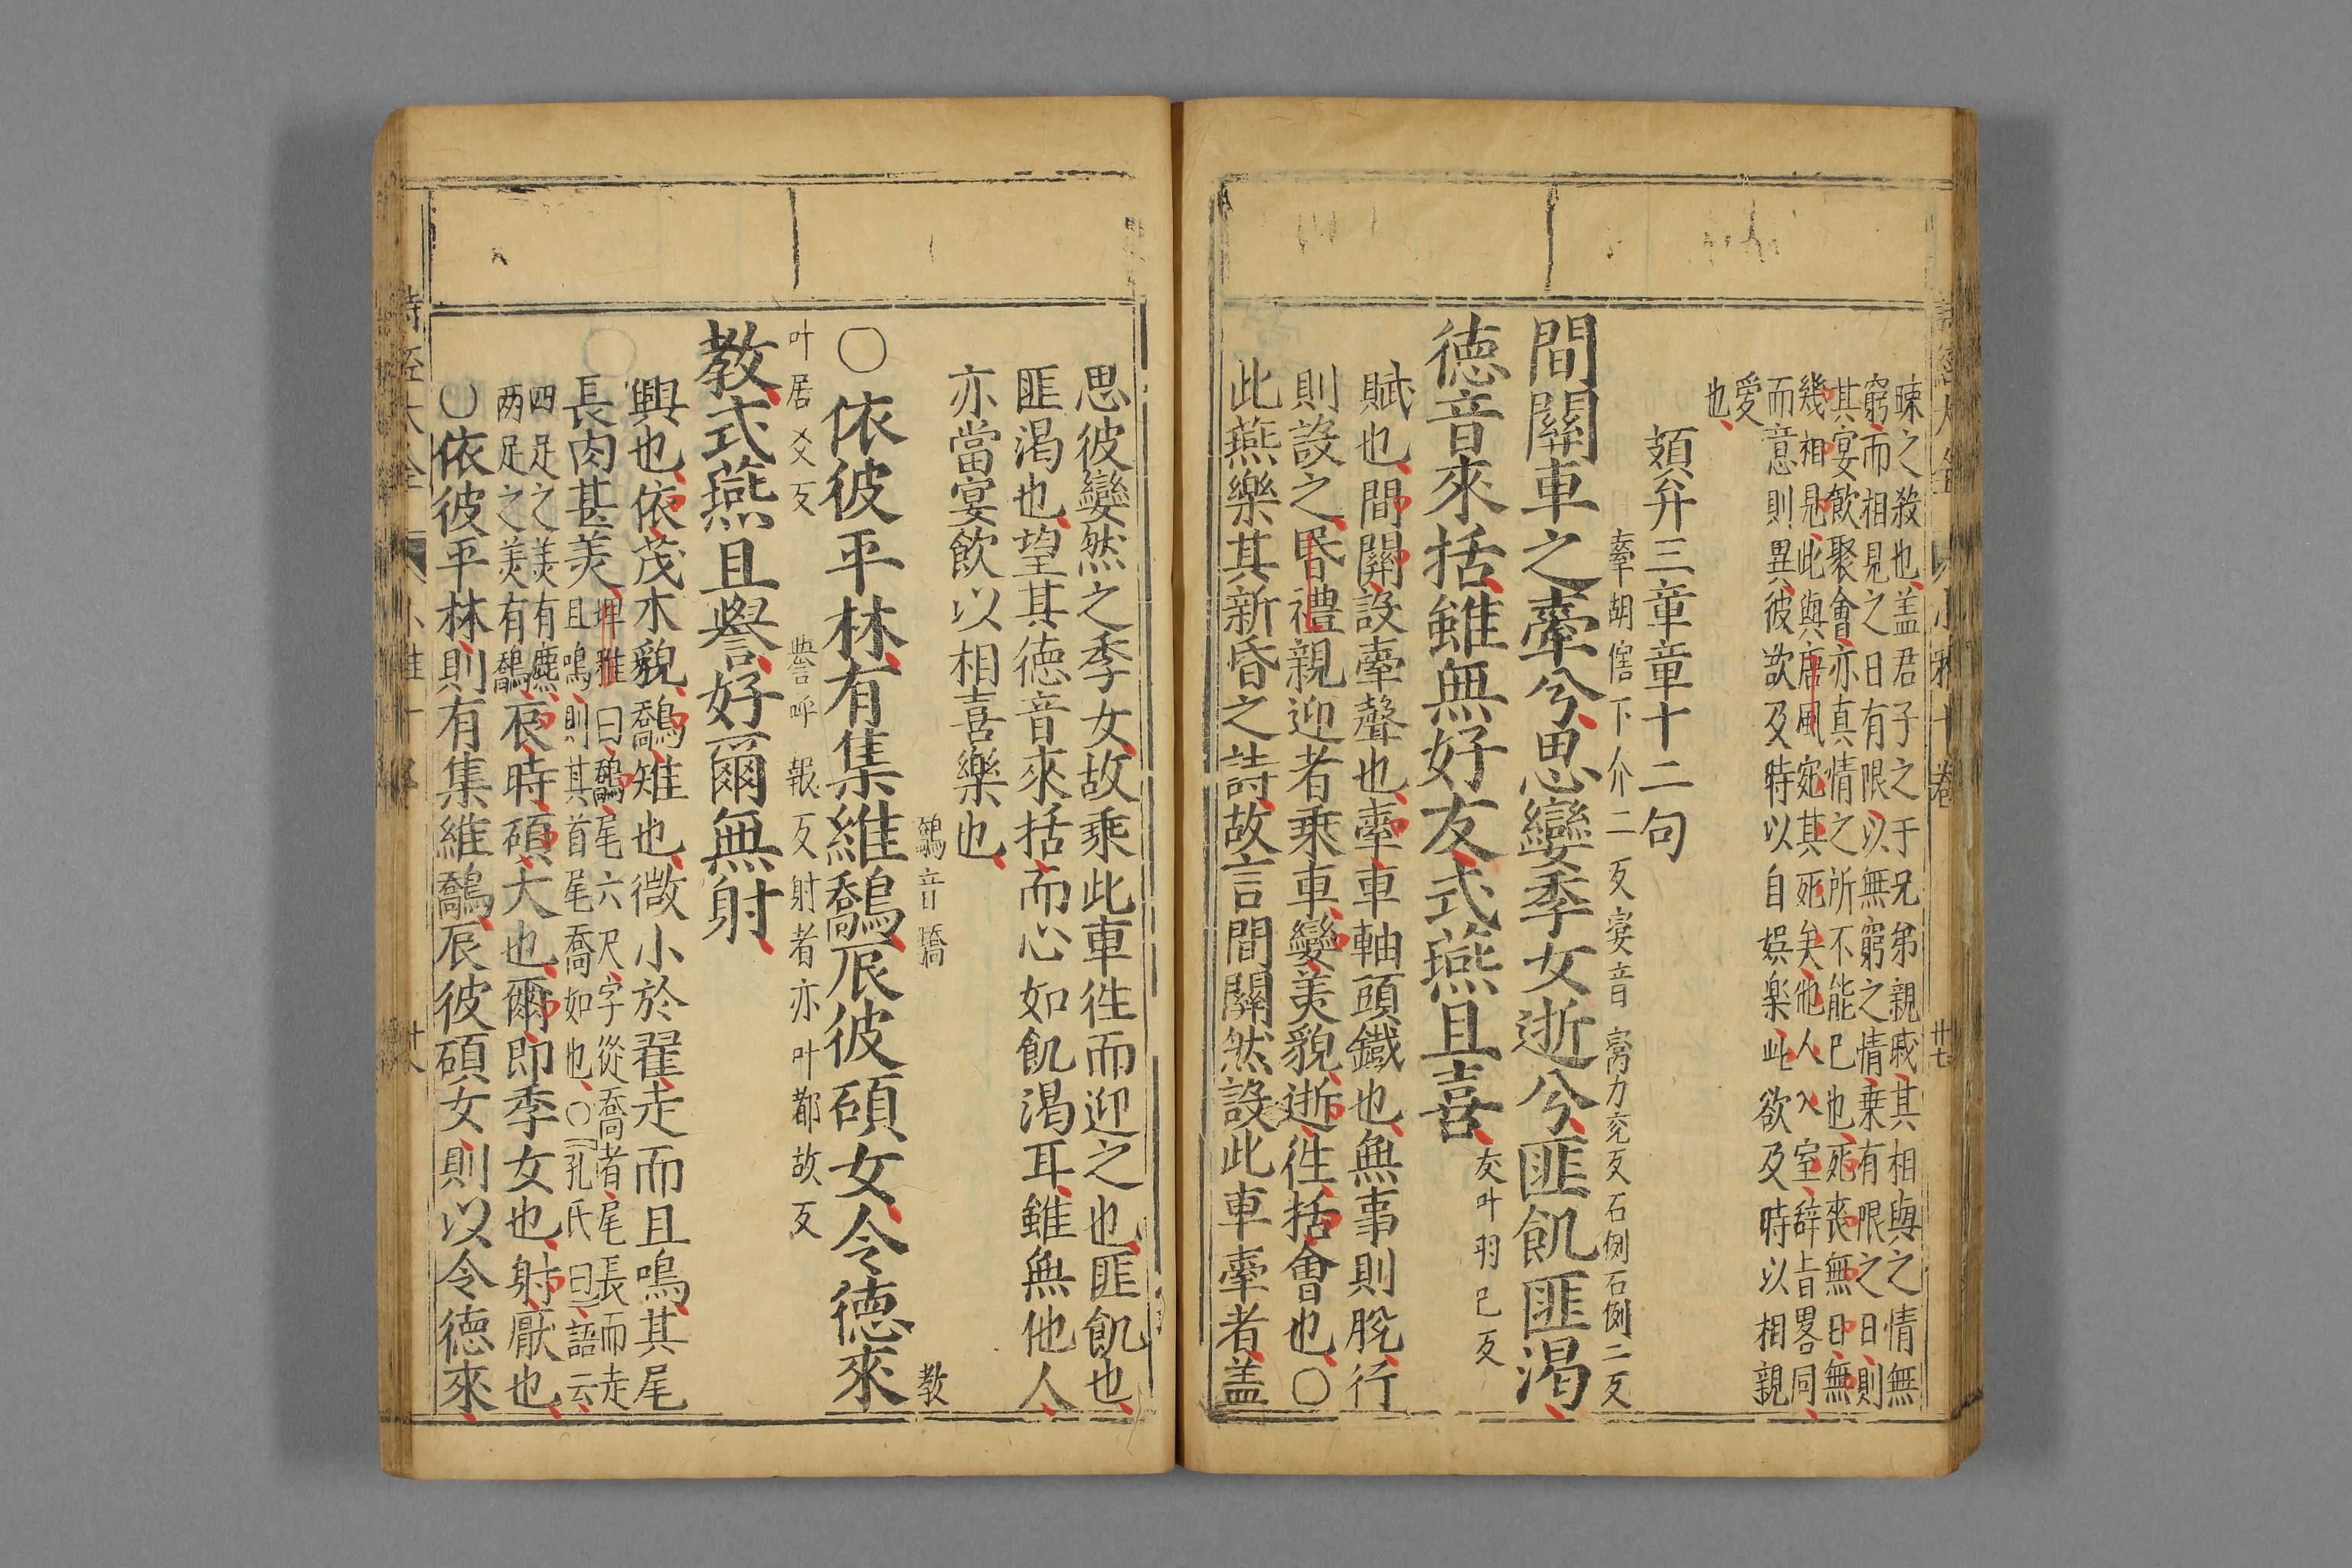 詩經大全 小雅十卷 廿七
疎之殺也盖君子之于兄弟親戚其相與之情無
窮而相見之日有限以無窮之情乗有限之日則
其宴飲聚會亦真情之所不能已也死丧無日無
幾相見此與唐風宛其死矣他人入室辞旨畧同
而意則異彼欲及時以自娯楽此欲及時以相親
愛
也
頍弁三章章十二句
舝胡傄下介二反宴音臠力兖反石例石例二反
間關車之舝兮思孌季女逝兮匪飢匪渇
德音來括雖無好友式燕且喜友叶羽已反
賦也間關設舝聲也舝車軸頭鐡也無事則脫行
則設之昬禮親迎者乗車孌美貌逝徃括會也〇
此燕樂其新昏之詩故言間關然設此車舝者盖
思彼孌然之季女故乘此車徃而迎之也匪飢也
匪渇也望其德音來括而心如飢渴耳雖無他人
亦當宴飲以相喜樂也
鷮音驕 教
〇依彼平林有集維鷮辰彼碩女令德來
叶居爻反 譽呼報反射者亦叶都故反
教式燕且譽好爾無射
興也依茂木貌鷮雉也微小於翟走而且鳴其尾
長肉甚美埤雅曰鷮尾六尺字從喬者尾長而走
且鳴則其首尾喬如也〇孔氏曰語云
四足之美有麃
两足之美有鷮辰時碩大也爾即季女也射厭也
〇依彼平林則有集維鷮辰彼碩女則以令德來
詩經大全 小雅十卷 廿八